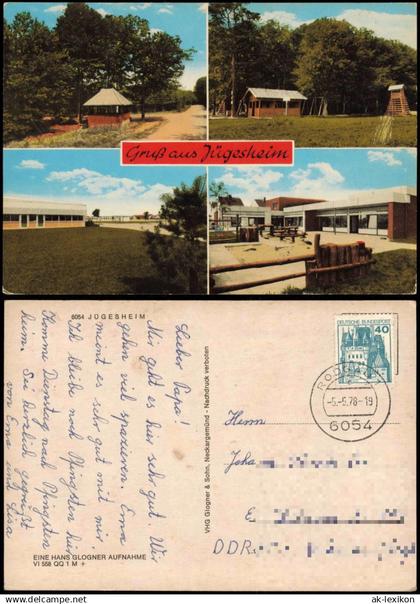 Gruß aus Jügesheim
6054 JÜGESHEIM
Lieber Papa!
Mir geht es hier sehr gut. Wir
gehen viel spazieren. Erna
meint es sehr gut mit mir.
Ich bleibe noch Pfingsten hier
Komme Dienstag nach Pfingsten
heim. Sei herzlich gegrüßt
von Erna und Lisa
EINE HANS GLOGNER AUFNAHME
VI 558 QQ 1 M +
VHG Glogner & Sohn, Neckargemünd - Nachdruck verboten
DEUTSCHE BUNDESPOST
40
-5.-5.78-19
6054
Herrn
Joha
E
DDR
© ak-lexikon
www.ak-lexikon.de